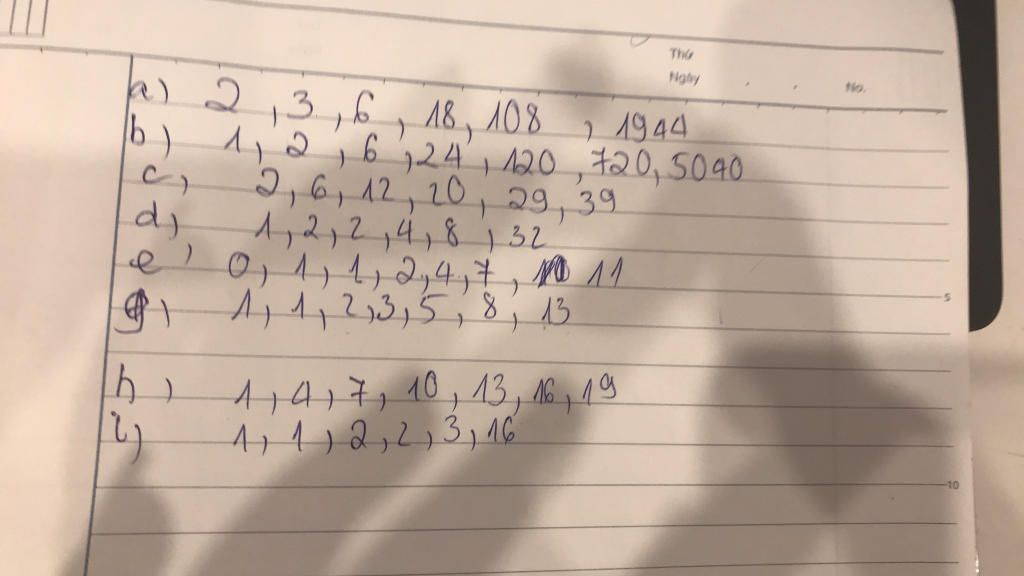 Thứ
Ngày . . No.
a) 2, 3, 6, 18, 108, 1944
b) 1, 2, 6, 24, 120, 720, 5040
c, 2, 6, 12, 20, 29, 39
d) 1, 2, 2, 4, 8, 32
e, 0, 1, 1, 2, 4, 7, 11
g) 1, 1, 2, 3, 5, 8, 13
5
h) 1, 4, 7, 10, 13, 16, 19
i) 1, 1, 2, 2, 3, 16
10